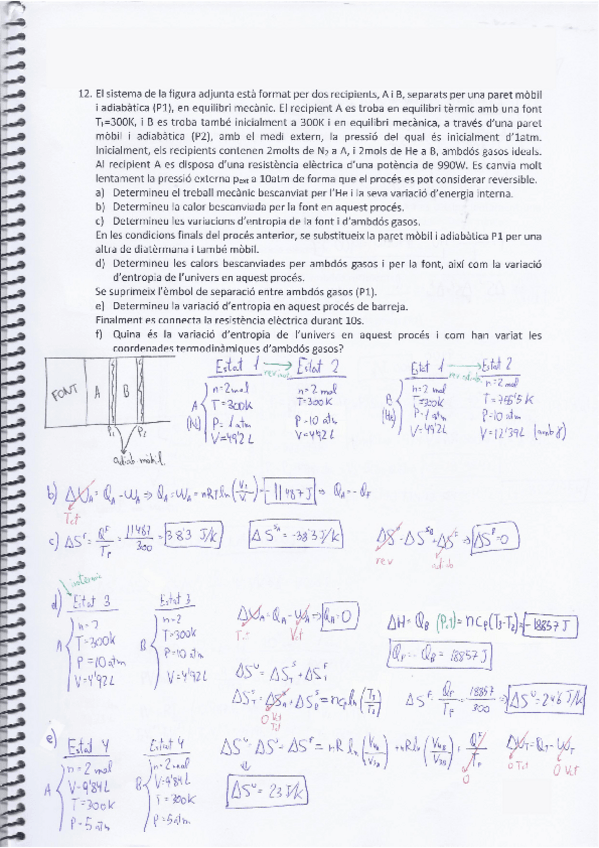 12. El sistema de la figura adjunta està format per dos recipients, A i B, separats per una paret mòbil
i adiabàtica (P1), en equilibri mecànic. El recipient A es troba en equilibri tèrmic amb una font
T₁=300K, i B es troba també inicialment a 300K i en equilibri mecànica, a través d'una paret
mòbil i adiabàtica (P2), amb el medi extern, la pressió del qual és inicialment d'1atm.
Inicialment, els recipients contenen 2mols de N₂ a A, i 2mols de He a B, ambdós gasos ideals.
Al recipient A es disposa d'una resistència elèctrica d'una potència de 990W. Es canvia molt
lentament la pressió externa pₑₓₜ a 10atm de forma que el procés es pot considerar reversible.
a) Determineu el treball mecànic bescanviat per l'He i la seva variació d'energia interna.
b) Determineu la calor bescanviada per la font en aquest procés.
c) Determineu les variacions d'entropia de la font i d'ambdós gasos.
En les condicions finals del procés anterior, se substitueix la paret mòbil i adiabàtica P1 per una
altra de diatèrmana i també mòbil.
d) Determineu les calors bescanviades per ambdós gasos i per la font, així com la variació
d'entropia de l'univers en aquest procés.
Se suprimeix l'èmbol de separació entre ambdós gasos (P1).
e) Determineu la variació d'entropia en aquest procés de barreja.
Finalment es connecta la resistència elèctrica durant 10s.
f) Quina és la variació d'entropia de l'univers en aquest procés i com han variat les
coordenades termodinàmiques d'ambdós gasos?
FONT A B
P₁ P₂
adiab mòbil.
Estat 1 Estat 2
A (N₂)
n=2mol n=2mol
T=300K T=300K
P=1atm P=10 atm
V=49'2L V=4'92L
Estat 1 Estat 2
B (He)
n=2 mol n=2 mol
T=300K T=755'5 K
P=1 atm P=10 atm
V=49'2L V=12'39L (amb γ)
b) ΔU_A = Q_A - W_A ⇒ Q_A = W_A = nRT ln = -11487 J ⇒ Q_A = -Q_F
T ct
c) ΔS^F = Q^F/T_F = 11487/300 = 38'3 J/K ΔS^A = -38'3 J/K ⇒ ΔS=0
rev adiab
d) Estat 3 Estat 3
A B
T=300K T=300K
P=10 atm P=10 atm
V=4'92L V=4'92L
ΔU_A = Q_A - W_A ⇒ Q_A=0
ΔH = Q_B (P ct) = nCp(T₃-T₂) = -18857 J
Q_F = -Q_B = 18857 J
ΔS^F = Q_F/T_F = 18857/300 ⇒ ΔS^u = 24'6 J/K
e) Estat 4 Estat 4
A B
n=2 mol n=2 mol
V=9'84L V=9'84L
T=300K T=300K
P=5atm P=5atm
ΔS^u = 23 J/K